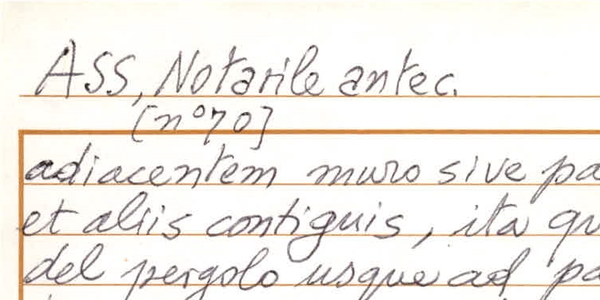 ASS, Notarile antec.
[n°70]
adiacentem muro sive pa
et aliis contiguis, ita qu
del pergolo usque ad pa